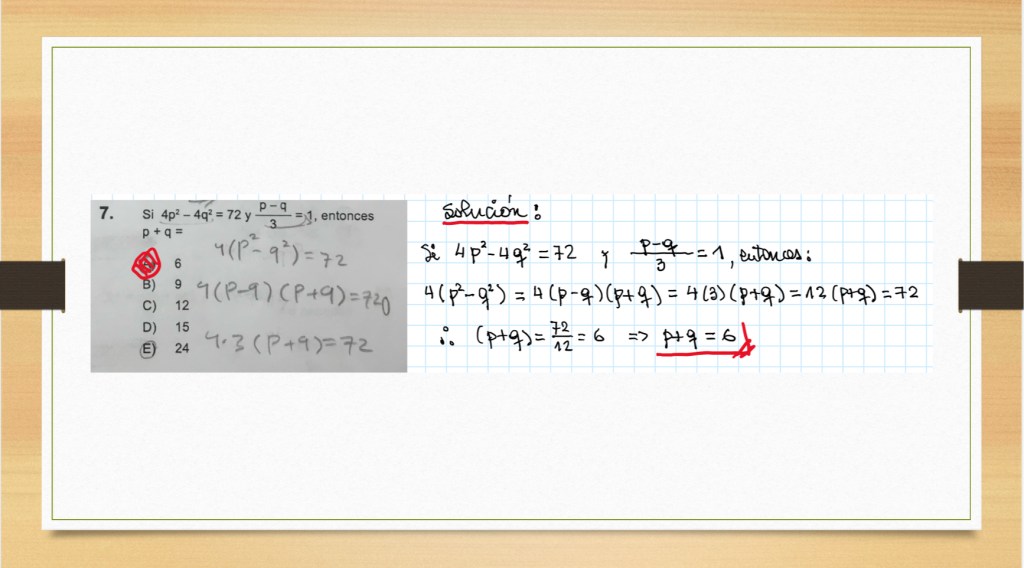 7. Si 4p² – 4q² = 72 y (p – q)/3 = 1, entonces
p + q =
A) 6
B) 9
C) 12
D) 15
E) 24
4(p² - q²) = 72
4(p-q)(p+q) = 720
4·3(p+q) = 72
Solución:
Si 4p² - 4q² = 72 y (p-q)/3 = 1, entonces:
4(p² - q²) = 4(p-q)(p+q) = 4(3)(p+q) = 12(p+q) = 72
∴ (p+q) = 72/12 = 6 => p+q = 6